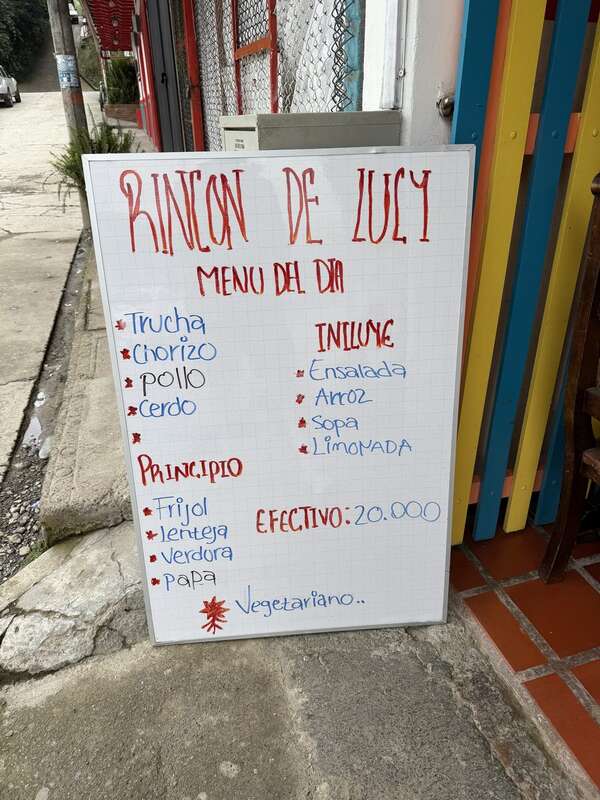 RINCON DE LUCY
MENU DEL DIA
Trucha
Chorizo
pollo
Cerdo
INILUYE
Ensalada
Arroz
Sopa
LIMONADA
PRINCIPIO
Frijol
lenteja
verdora
papa
EFECTIVO: 20.000
Vegetariano..